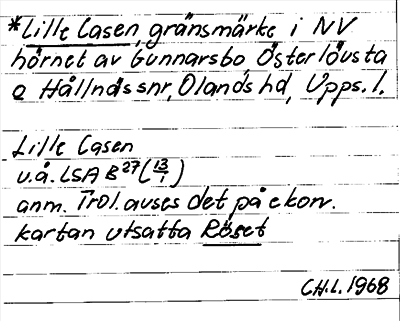 *Lille Casen, gränsmärke i NV
hörnet av Gunnarsbo, Österlövsta
o Hållnässnr, Olands hd, Upps. l.
Lille Casen
u.å. LSA B27 (13/1)
anm. Trol. avses det på ekon.
kartan utsatta Röset
C.H.L. 1968